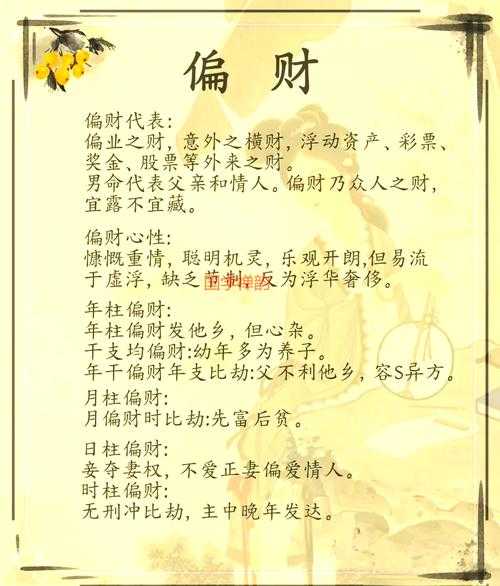 偏 财
偏财代表:
偏业之财, 意外之横财, 浮动资产、彩票、
奖金、股票等外来之财。
男命代表父亲和情人。偏财乃众人之财,
宜露不宜藏。
偏财心性:
慷慨重情, 聪明机灵, 乐观开朗,但易流
于虚浮, 缺乏节制, 反为浮华奢侈。
年柱偏财:
年柱偏财发他乡, 但心杂。
干支均偏财:幼年多为养子。
年干偏财年支比劫:父不利他乡, 容S异方。
月柱偏财:
月偏财时比劫:先富后贫。
日柱偏财:
妾夺妻权, 不爱正妻偏爱情人。
时柱偏财:
无刑冲比劫, 主中晚年发达。